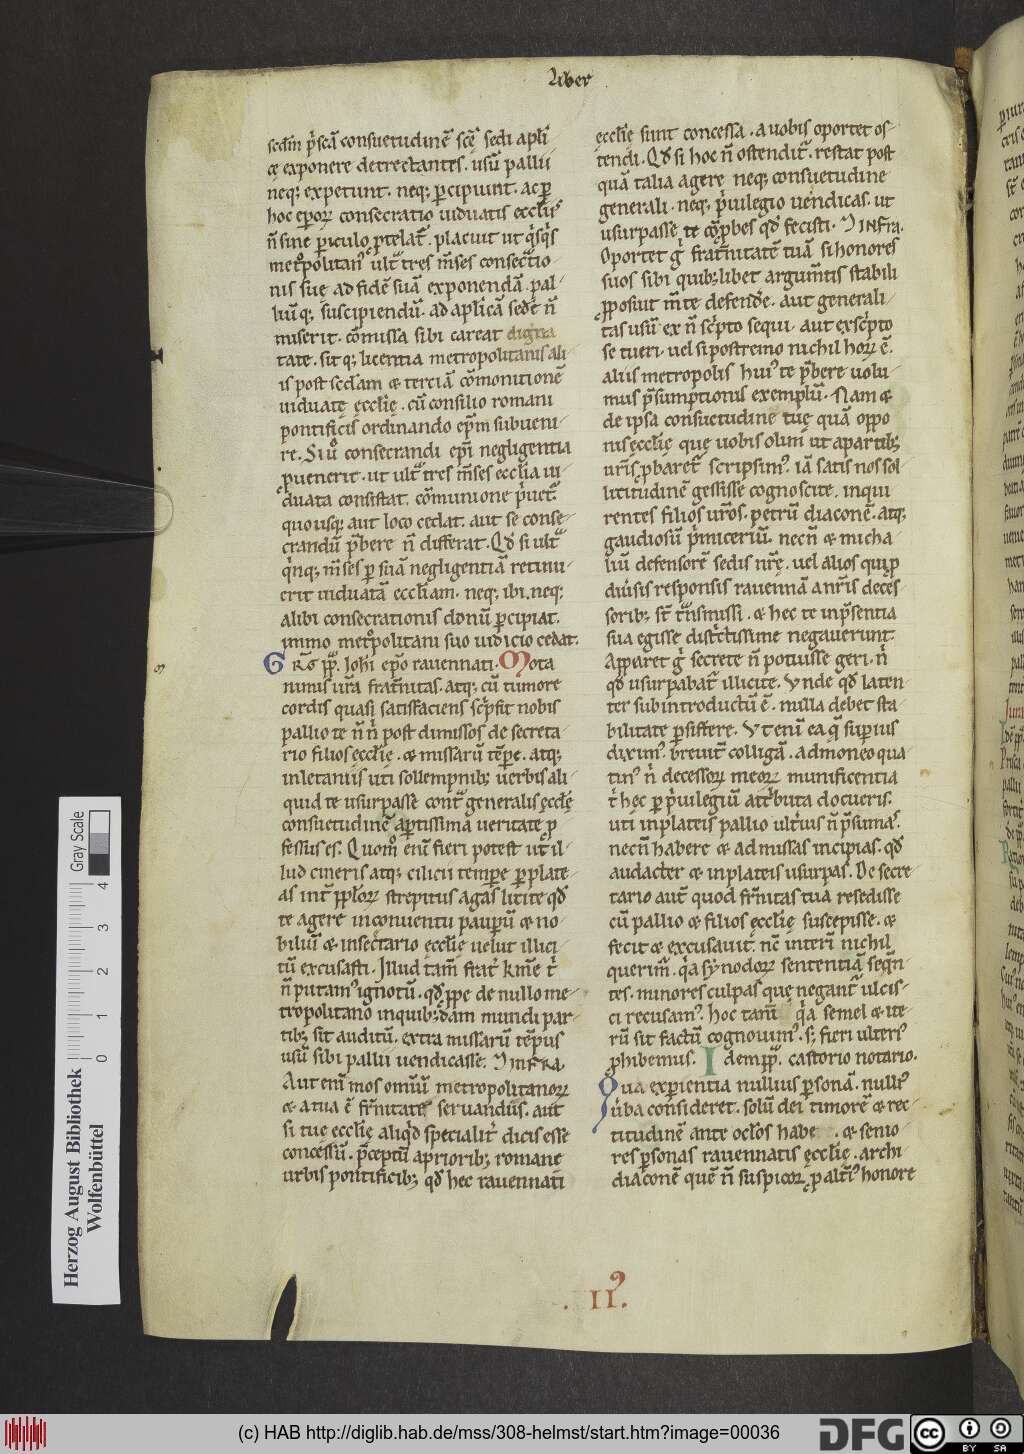 Liber
scd̄m p̄scā consuetudinē scē sedi apl̄i
cę exponere detrectantes. usū pallii
neq; expetunt. neq; p̄cipiunt. ac p̄
hoc ep̄oꝝ consecratio uiduatis eccl̄iis
n̄ sine periculo ꝓtelat̄. placuit ut q̇sq̇s
met̊politan᾽ ult̄ tres m̄ses consec̄tio
nis suę ad fidē suā exponendā. pal
liūq; suscipiendū. ad apl̄icā sedē n̄
miserit. cōmissa sibi careat digni
tate. sitq; licentia metropolitanis ali
is post scd̄am & terciā cōmonitionē
uiduatę ęcclię. cū consilio romani
pontificis ordinando ep̄m subueni
re. Si ů consecrandi ep̄i negligentia
ꝓuenerit. ut ult̄ tres m̄ses ecclia ui
duata consistat. cōmunione p̄uet̄.
quousq; aut loco cedat. aut se conse
crandū p̄bere n̄ differat. Qd̄ si ult̄
q̇nq; m̄ses ꝑ suā negligentiā retinu
erit uiduatā eccl̄iam. neq; ibi. neq;
alibi consecrationis donū ꝑcipiat.
immo met̊politani suo iudicio cedat.
Grḡ pp̄. Iohi ep̄o rauennati. Mota
nimis ur̄a frat̄nitas. atq; cū tumore
cordis quasi satisfaciens sc̄psit nobis
pallio te n̄ n̄ post dimissos de secreta
rio filios ęcclię. & missarū tēpe. atq;
in letaniis uti sollempnib; uerbis ali
quid te usurpasse cont̄ generalis ęcclę
consuetudinē aꝑtissima ueritate ꝓ
fessus es. Quom̊ enī fieri potest ut il
lud cineris atq; cilicii tempe ꝑ plate
as int̄ pploꝝ strepitus agas licite qd̄
te agere in conuentu pauꝑū & no
biliū & in sec̄tario ęcclię uelut illici
tū excusasti. Illud tam̄ frat̄ km̄e t̄
n̄ putam᾽ ignotū. qd̄ ꝓpe de nullo me
tropolitano in quib;dam mundi par
tib; sit auditū. extra missarū tēpus
usū sibi pallii uendicasse. ⁊ INFRA.
Aut enī mos omiū metropolitanoꝝ
& a tua ē fr̄nitate seruandus. aut
si tuę ecclię aliqd̄ specialit̄ dicis esse
concessū. p̄ceptū a priorib; romanę
urbis pontificib; qd̄ hęc rauennati
ęcclię sunt concessa. a uobis oportet os
tendi. Qd̄ si hoc n̄ ostendit̄. restat post
quā talia agere neq; consuetudine
generali. neq; p̄uilegio uendicas. ut
usurpasse te cōp̄bes qd̄ fecisti. ⁊ INFRa.
Oportet ḡ frat̄nitatē tuā si honores
suos sibi quib;libet argum̄tis stabili
ꝓposuit m̄te defende. aut generali
tas usū ex n̄ sc̄pto sequi. aut ex sc̄pto
se tueri. uel si postremo nichil hoꝝ ē.
aliis metropolis hui᾽ te p̄bere uolu
mus p̄sumptionis exemplū. Nam &
de ipsa consuetudine tuę quā oppo
nis ęcclię que uobis olim ut a partib;
ur̄is ꝓbaret̄ scripsim᾽. iā satis nos sol
licitudinē gessisse cognoscite. inqui
rentes filios uros. petrū diaconē. atq;
gaudiosū p̄micerium. necn̄ & micha
liū defensorē sedis nr̄ę. uel alios qui ꝓ
diūsis responsis rauennā a nr̄is deces
sorib; st̄ t̄nsmissi. & hęc te in p̄sentia
sua egisse dist̄ctissime negauerunt.
Apparet ḡ secrete n̄ potuisse geri. n̄
qd̄ usurpabat̄ illicite. Vnde qd̄ laten
ter subintroductū ē. nulla debet sta
bilitate ꝑsistere. Vt enī ea q̄ suꝑius
diximus breuit̄ colligā. admoneo qua
tin᾽ n̄ decessoꝝ meoꝝ munificentia
t̄ hęc ꝑ p̄uilegiū att̄buta docueris.
uti in plateis pallio ult̄ius n̄ p̄sumas.
necn̄ habere & ad missas incipias. qd̄
audacter & in plateis usurpas. De secre
tario aut̄ quod fr̄nitas tua resedisse
cū pallio & filios ęcclię suscepisse. &
fecit & excusauit. nc̄ interī nichil
querim᾽. q̇a synodoꝝ sententiā seqn̄
tes. minores culpas que negant̄ ulcis
ci recusam᾽. hoc tam̄ q̇a semel & ite
rū sit factū cognouim᾽. s; fieri ulteri᾽
ꝓhibemus. Idem pp̄. castorio notario.
Qua exꝑientia nullius ꝑsonā. nulli᾽
ūba consideret. solū dei timorē & rec
titudinē ante oc̄los habe &senio
res ꝑsonas rauennatis ęcclię. archi
diaconē quē n̄ suspicoꝝ. ꝓ alt̄i᾽ honore
. II᾽.
Gray Scale
4
3
2
1
0
Herzog August Bibliothek
Wolfenbüttel
(c) HAB http://diglib.hab.de/mss/308-helmst/start.htm?image=00036
DFG
cc
BY SA